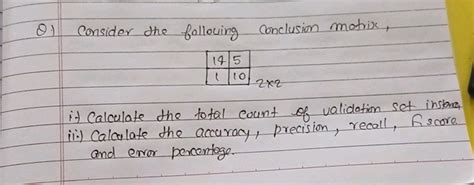 Q) Consider the following conclusion matrix,
14 5
1 10 2x2
i) Calculate the total count of validation set instances
ii) Calculate the accuracy, precision, recall, F1 score
and error percentage.